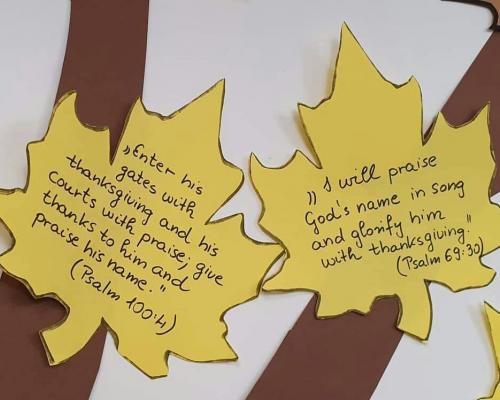 „Enter his
gates with
thanksgiving and his
courts with praise; give
thanks to him and
praise his name."
(Psalm 100:4)
„I will praise
God's name in song
and glorify him
with thanksgiving."
(Psalm 69:30)